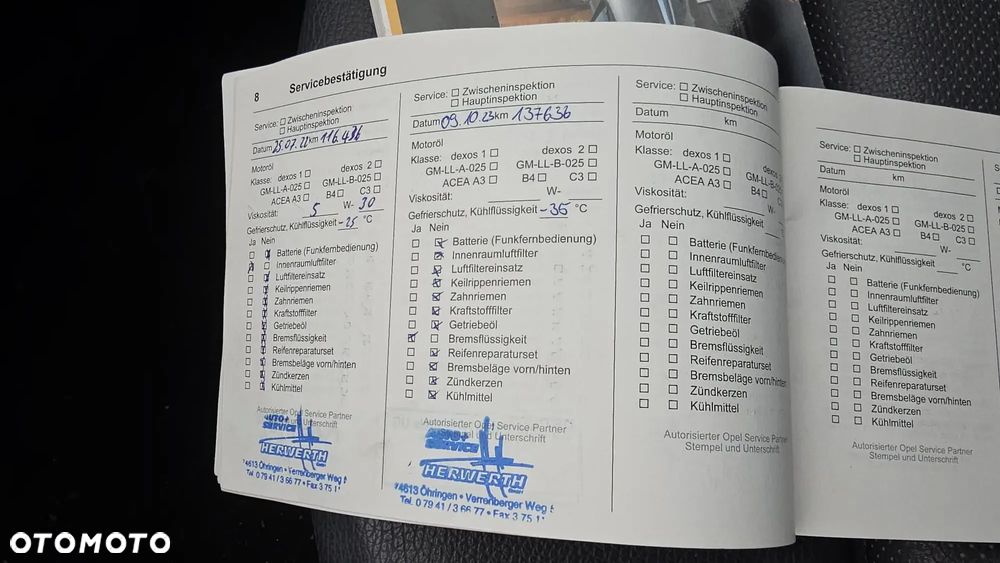 8 Servicebestätigung
Service: Zwischeninspektion
Hauptinspektion
Datum 25.07.22 km 116.436
Motoröl
Klasse: dexos 1 dexos 2
GM-LL-A-025 GM-LL-B-025
ACEA A3 B4 C3
Viskosität: 5 W- 30
Gefrierschutz, Kühlflüssigkeit -25 °C
Ja Nein
Batterie (Funkfernbedienung)
Innenraumluftfilter
Luftfiltereinsatz
Keilrippenriemen
Zahnriemen
Kraftstofffilter
Getriebeöl
Bremsflüssigkeit
Reifenreparaturset
Bremsbeläge vorn/hinten
Zündkerzen
Kühlmittel
Autorisierter Opel Service Partner
und Unterschrift
AUTO+
SERVICE
HERWERTH
74613 Öhringen • Verrenberger Weg
Tel. 0 79 41 / 3 66 77 • Fax 3 75 1
Service: Zwischeninspektion
Hauptinspektion
Datum 09.10.23 km 137636
Motoröl
Klasse: dexos 1 dexos 2
GM-LL-A-025 GM-LL-B-025
ACEA A3 B4 C3
Viskosität: W-
Gefrierschutz, Kühlflüssigkeit -36 °C
Ja Nein
Batterie (Funkfernbedienung)
Innenraumluftfilter
Luftfiltereinsatz
Keilrippenriemen
Zahnriemen
Kraftstofffilter
Getriebeöl
Bremsflüssigkeit
Reifenreparaturset
Bremsbeläge vorn/hinten
Zündkerzen
Kühlmittel
Autorisierter Opel Service Partner
und Unterschrift
AUTO+
SERVICE
HERWERTH
74613 Öhringen • Verrenberger Weg
Tel. 0 79 41 / 3 66 77 • Fax 3 75 1
Service: Zwischeninspektion
Hauptinspektion
Datum km
Motoröl
Klasse: dexos 1 dexos 2
GM-LL-A-025 GM-LL-B-025
ACEA A3 B4 C3
Viskosität: W-
Gefrierschutz, Kühlflüssigkeit
Ja Nein
Batterie (Funkfernbedienung)
Innenraumluftfilter
Luftfiltereinsatz
Keilrippenriemen
Zahnriemen
Kraftstofffilter
Getriebeöl
Bremsflüssigkeit
Reifenreparaturset
Bremsbeläge vorn/hinten
Zündkerzen
Kühlmittel
Autorisierter Opel Service Partner
Stempel und Unterschrift
Service: Zwischeninspektion
Hauptinspektion
Datum km
Motoröl
Klasse: dexos 1 dexos 2
GM-LL-A-025 GM-LL-B-025
ACEA A3 B4 C3
Viskosität: W-
Gefrierschutz, Kühlflüssigkeit °C
Ja Nein
Batterie (Funkfernbedienung)
Innenraumluftfilter
Luftfiltereinsatz
Keilrippenriemen
Zahnriemen
Kraftstofffilter
Getriebeöl
Bremsflüssigkeit
Reifenreparaturset
Bremsbeläge vorn/hinten
Zündkerzen
Kühlmittel
Autorisierter Opel Service Partner
Stempel und Unterschrift
OTOMOTO